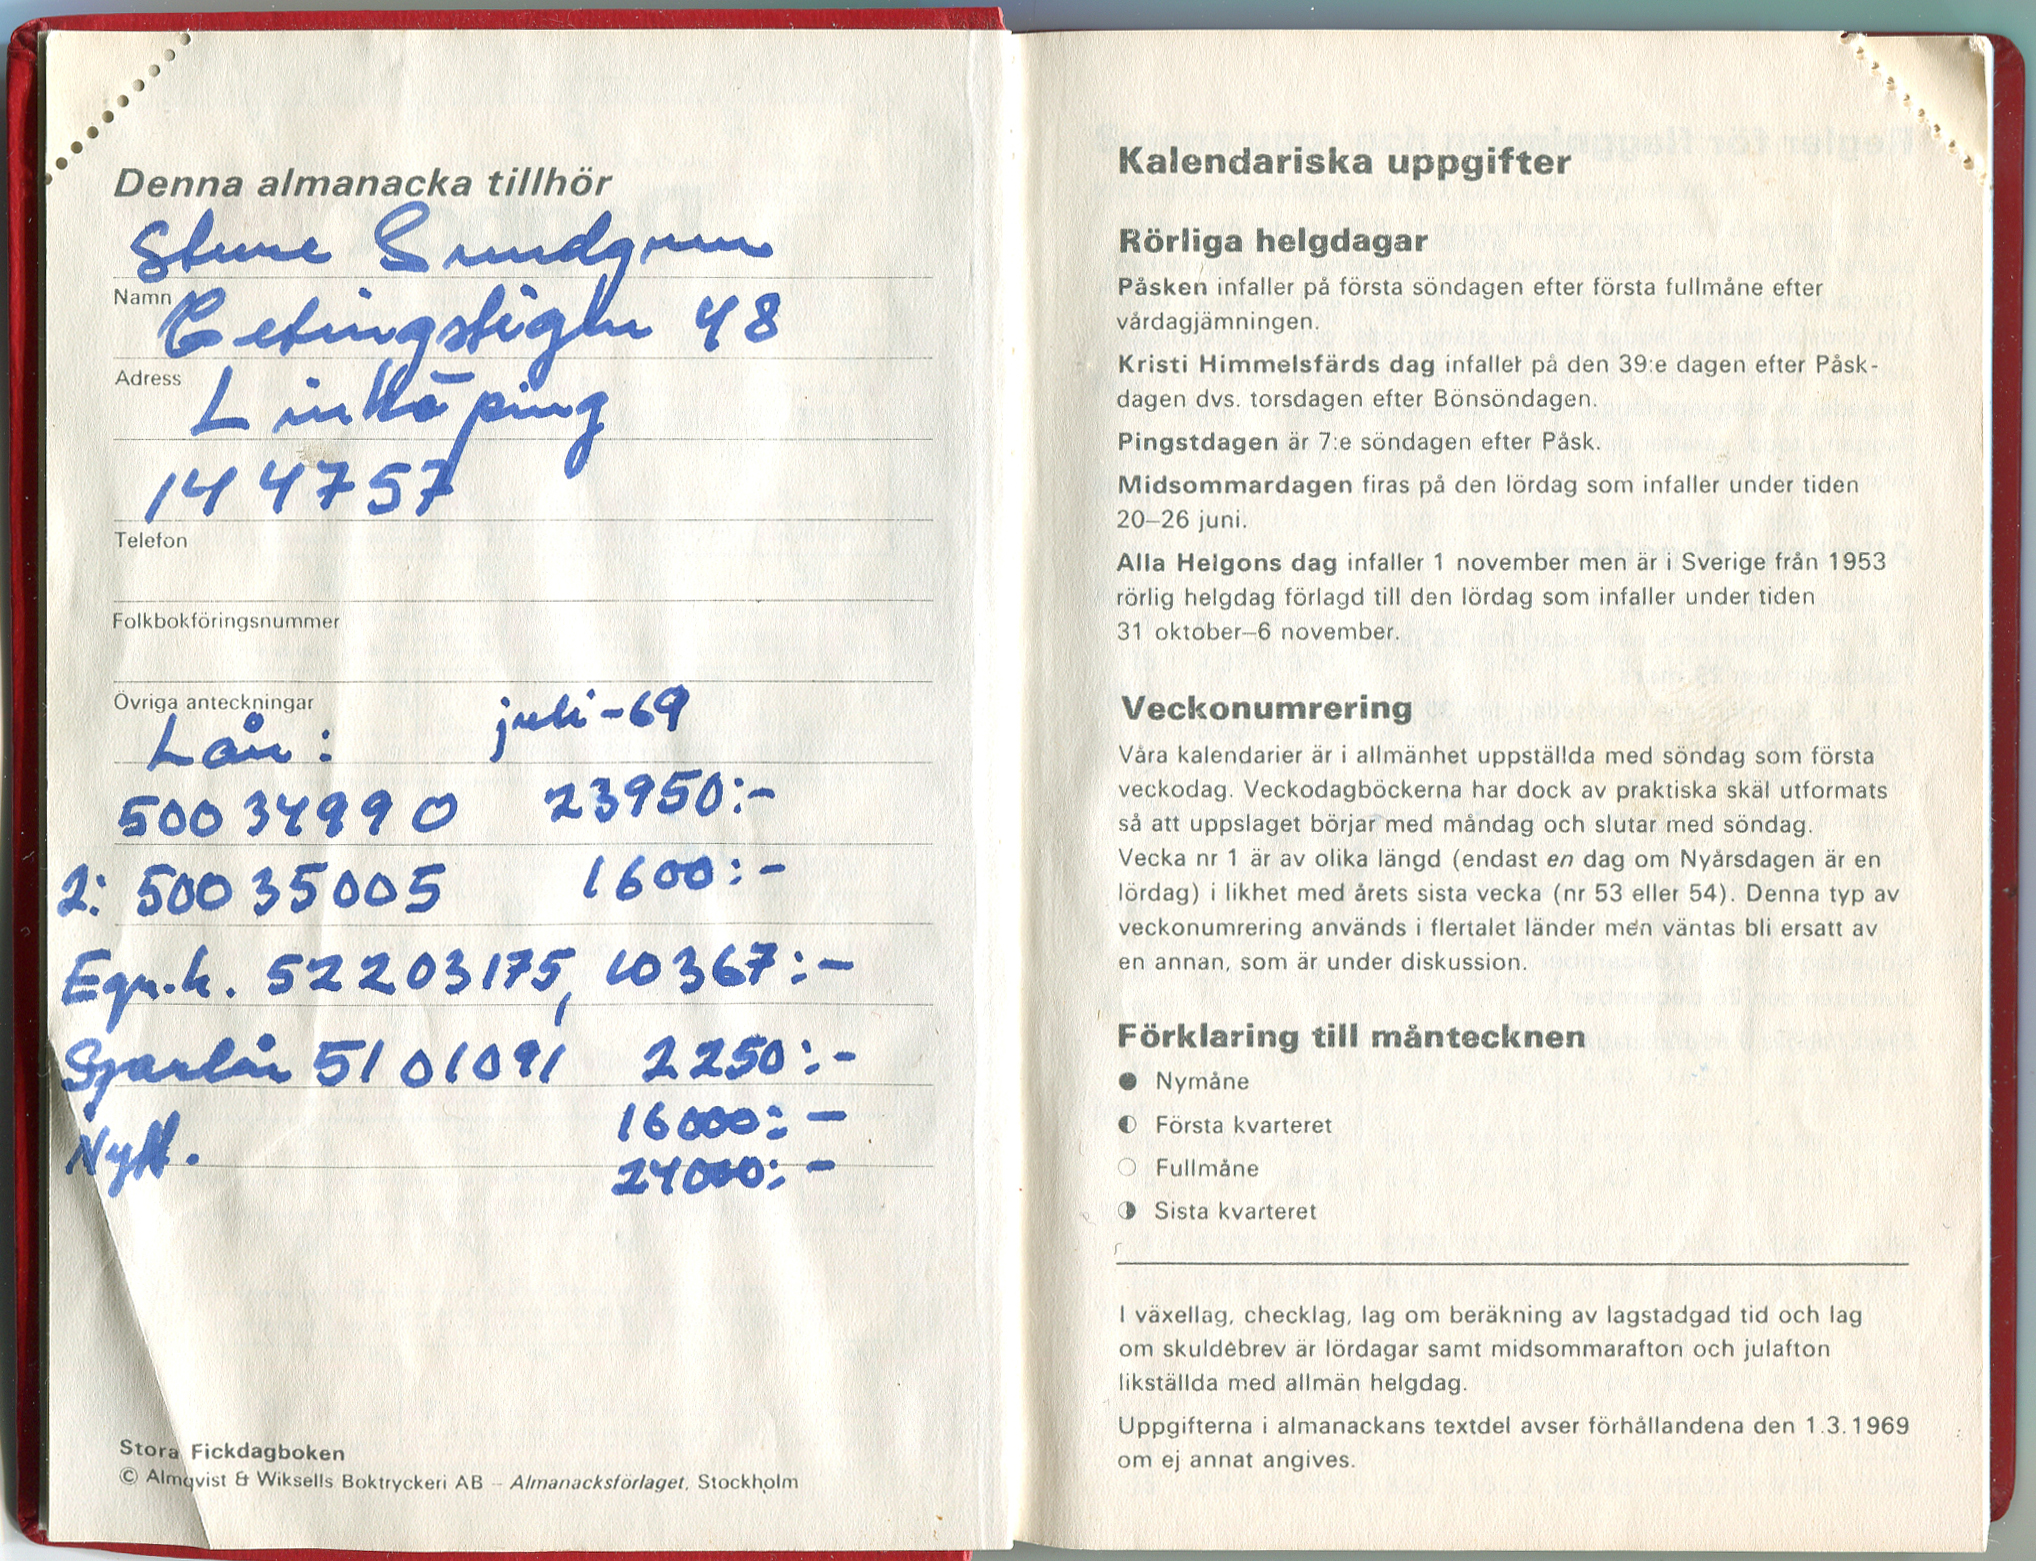 Denna almanacka tillhör
Sture Sundgren
Namn
Getingstigen 48
Adress
Linköping
144757
Telefon
Folkbokföringsnummer
Övriga anteckningar
juli-69
Lån:
50034990 23950:-
2: 50035005 1600:-
Egn.h. 52203175, 10367:-
Sparlån 5101091 2250:-
16000:-
Nytt.
24000:-
Stora Fickdagboken
© Almqvist & Wiksells Boktryckeri AB – Almanacksförlaget, Stockholm
Kalendariska uppgifter
Rörliga helgdagar
Påsken infaller på första söndagen efter första fullmåne efter
vårdagjämningen.
Kristi Himmelsfärds dag infaller på den 39:e dagen efter Påsk-
dagen dvs. torsdagen efter Bönsöndagen.
Pingstdagen är 7:e söndagen efter Påsk.
Midsommardagen firas på den lördag som infaller under tiden
20–26 juni.
Alla Helgons dag infaller 1 november men är i Sverige från 1953
rörlig helgdag förlagd till den lördag som infaller under tiden
31 oktober–6 november.
Veckonumrering
Våra kalendarier är i allmänhet uppställda med söndag som första
veckodag. Veckodagböckerna har dock av praktiska skäl utformats
så att uppslaget börjar med måndag och slutar med söndag.
Vecka nr 1 är av olika längd (endast en dag om Nyårsdagen är en
lördag) i likhet med årets sista vecka (nr 53 eller 54). Denna typ av
veckonumrering används i flertalet länder men väntas bli ersatt av
en annan, som är under diskussion.
Förklaring till måntecknen
● Nymåne
◐ Första kvarteret
○ Fullmåne
◑ Sista kvarteret
I växellag, checklag, lag om beräkning av lagstadgad tid och lag
om skuldebrev är lördagar samt midsommarafton och julafton
likställda med allmän helgdag.
Uppgifterna i almanackans textdel avser förhållandena den 1.3.1969
om ej annat angives.